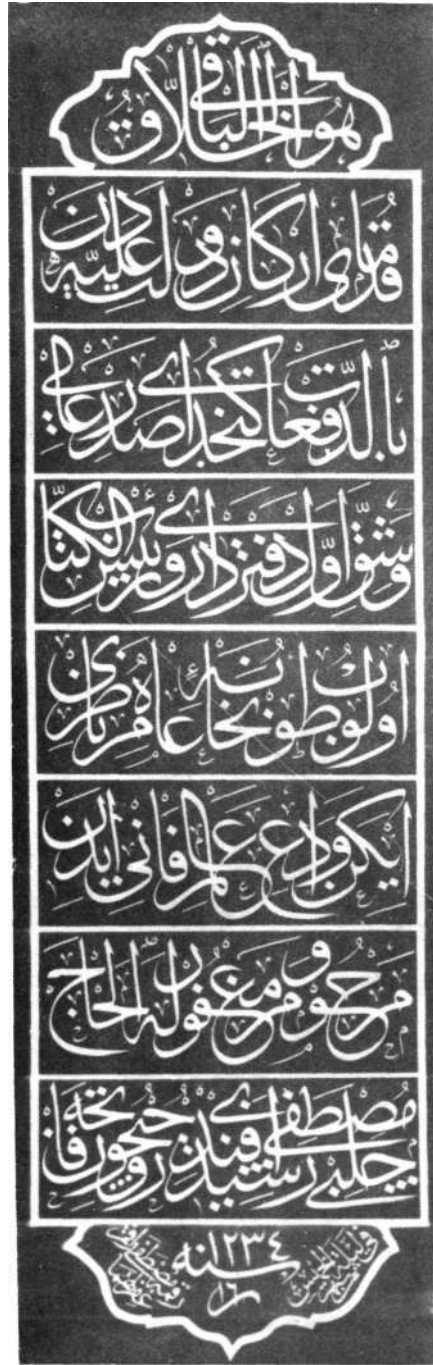 هو الخلاق الباقي
قدماى اركان دولت عليه دن
بالدفعات كتخداى صدر عالى
و شق اول دفتردارى و رئيس الكتاب
اولوب طوپخانه عامره ناظرى
ايكن وداع عالم فانى ايدن
مرحوم و مغفور له الحاج
مصطفى رشيد افندى روحيچون فاتحه
سنه ١٢٣٤